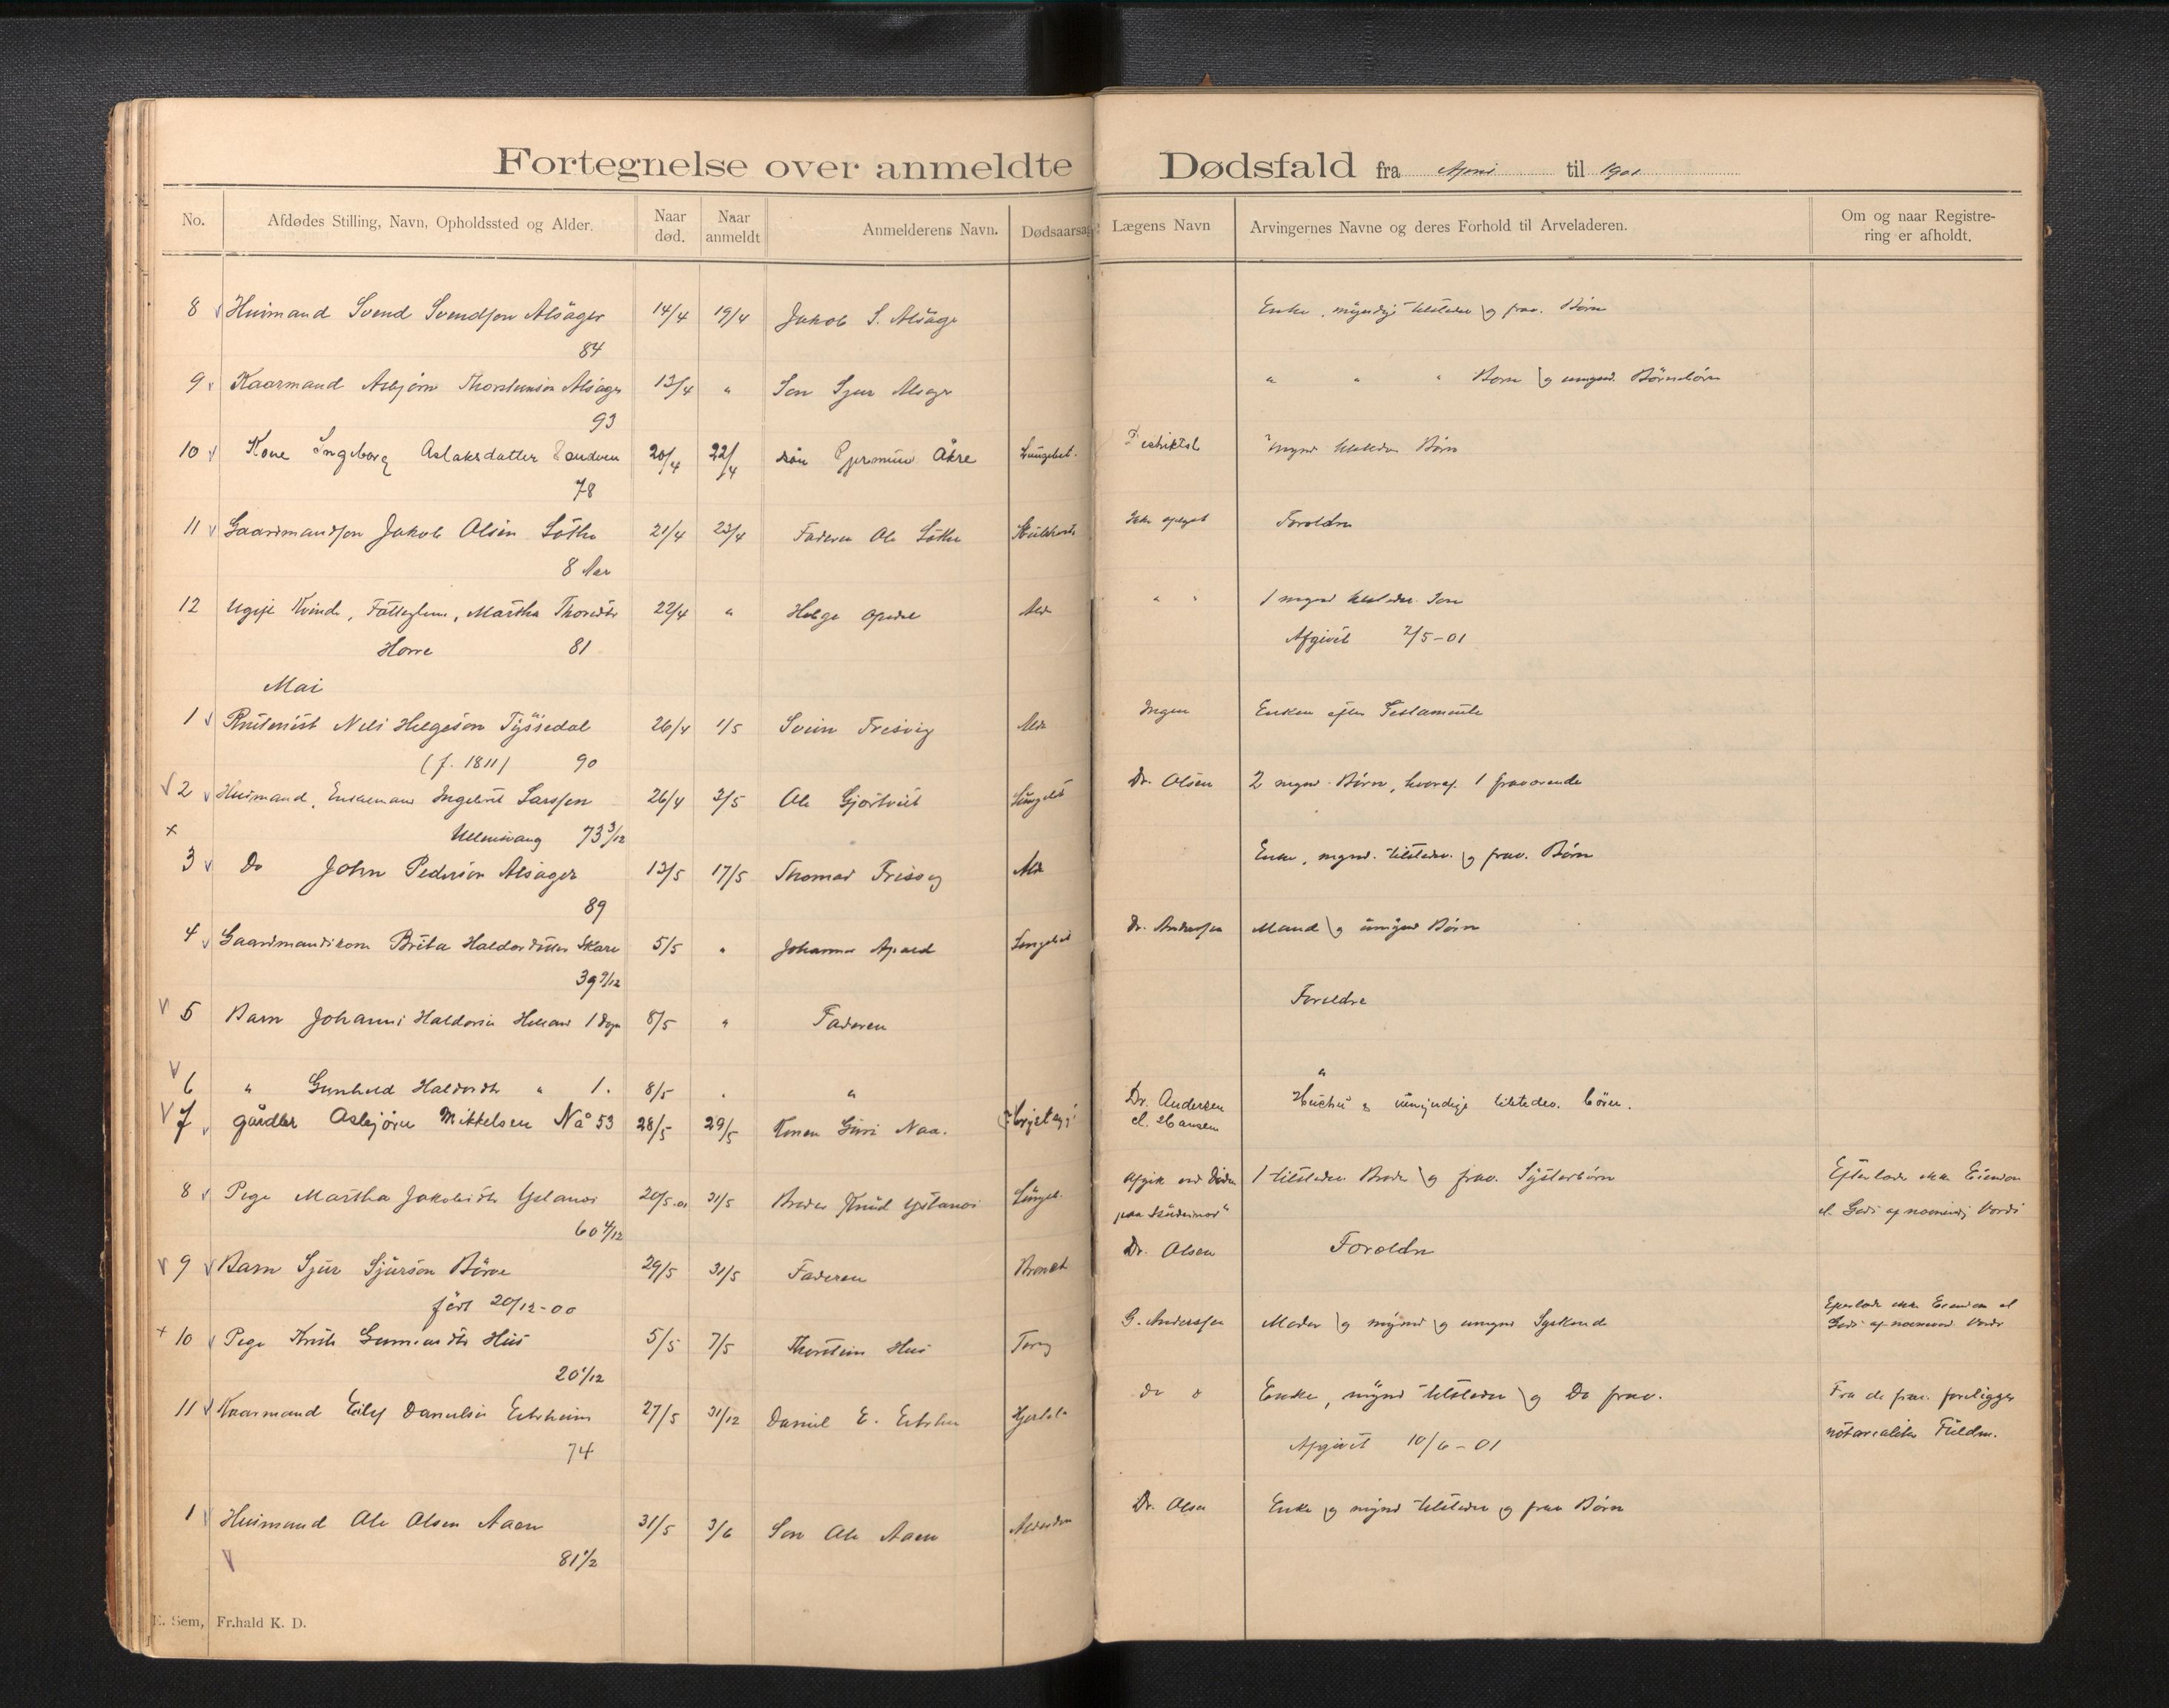 Fortegnelse over anmeldte Dødsfald fra April til 1901
No. Afdødes Stilling, Navn, Opholdssted og Alder. Naar død. Naar anmeldt Anmelderens Navn. Dødsaarsag Lægens Navn Arvingernes Navne og deres Forhold til Arveladeren. Om og naar Registrering er afholdt.
8 Husmand Svend Svendsøn Alsåger 14/4 19/4 Jakob S. Alsåger Enke, myndige tilstedev. og frav. Børn
84
9 Kaarmand Asbjørn Thorsteinsøn Alsåger 13/4 " Søn Sjur Alsager " " " Børn og umynd. Børnebørn
93
10 Kone Ingeborg Aslaksdatter 20/4 22/4 Åkre Lungebet. Distriktsl. mynd tilstedev Børn
78
11 Gaardmandsøn Jakob Olsen 21/4 23/4 Faderen Ole Ikke opgivet Forældre
8 Aar
12 Ugift Kvinde, Fattiglem, Martha Thorsdtr 22/4 " Helge Opedal Alder " " 1 mynd tilstedev. Søn
Horre 81 Afgivet 2/5-01
Mai
1 Nils Helgesøn Tyssedal 26/4 1/5 Svein Freisvig Alder Ingen Enken efter Testamente
(f. 1811) 90
2 Husmand, Enkemand Ingebret Larssen 26/4 3/5 Ole Lungebet Dr. Olsen 2 mynd. Børn, hvoraf 1 fraværende
Ullensvang 73 3/12
3 Do John Pedersøn Alsåger 13/5 17/5 Thomas Freisvig Alder Enke, mynd. tilstedev. og frav. Børn
89
4 Gaardmandskone Brita Haldorsdatter Skare 5/5 " Johannes Apold Lungebet Dr. Anderssen Mand og umynd Børn
39 9/12
5 Barn Johannes Haldorsen 1 Dogn 8/5 " Faderen Forældre
6 " Gunhild Haldorsdtr " 1. 8/5 " " "
7 gårdbr Asbjørn Mikkelsen Nå 53 28/5 29/5 Konen Guri Naa. Dr. Andersen Hustru & umyndige tilstedev. børn.
el. Hansen
8 Pige Martha Jakobsdtr 20/5-01 31/5 Broder Knud Lungeb. Afgik ved Døden 1 tilstedev Broder og frav. Søsterbørn Efterlader ikke Eiendom
60 4/12 paa el. Gods af nævneværdi Værdi
9 Barn Sjur Sjursøn Børve 29/5 31/5 Faderen Dr. Olsen Forældre
født 20/12-00
10 Pige Hus 5/5 7/5 Thorstein Hus Tæring G. Anderssen Moder og mynd og umynd Syskende Efterlader ikke Eiendom el
20 1/12 Gods af nævneværd. Værdi
11 Kaarmand Eilef Danielsen Eitrheim 27/5 31/12 Daniel E. Eitrheim do " Enke, mynd tilstedev og Do frav. Fra de frav. foreligger
74 Afgivet 10/6-01 Fuldm.
1 Husmand Ole Olsen Aaen 31/5 3/6 Søn Ole Aaen Alderdom Dr. Olsen Enke og mynd tilstedev og frav Børn
81 1/2
E. Sem, Fr.hald K. D.